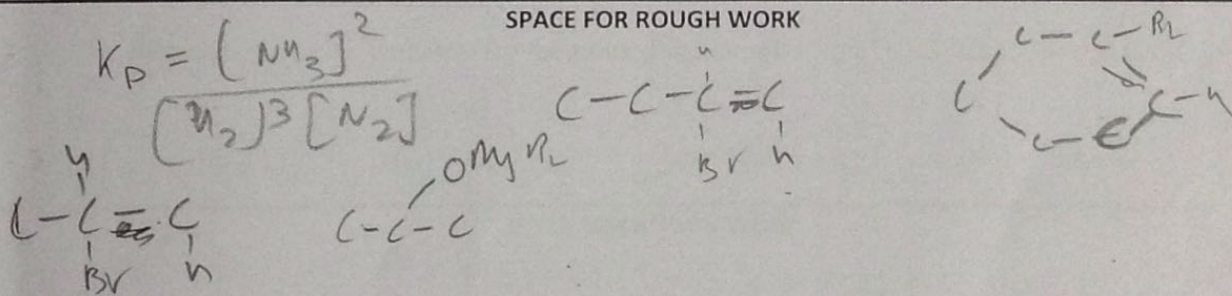 SPACE FOR ROUGH WORK
Kp = [NH3]^2
[H2]^3 [N2]
H
C-C-C=C
Br H
C-C-Br
C C-H
C-C
H
C-C=C
Br H
OMgBr
C-C-C